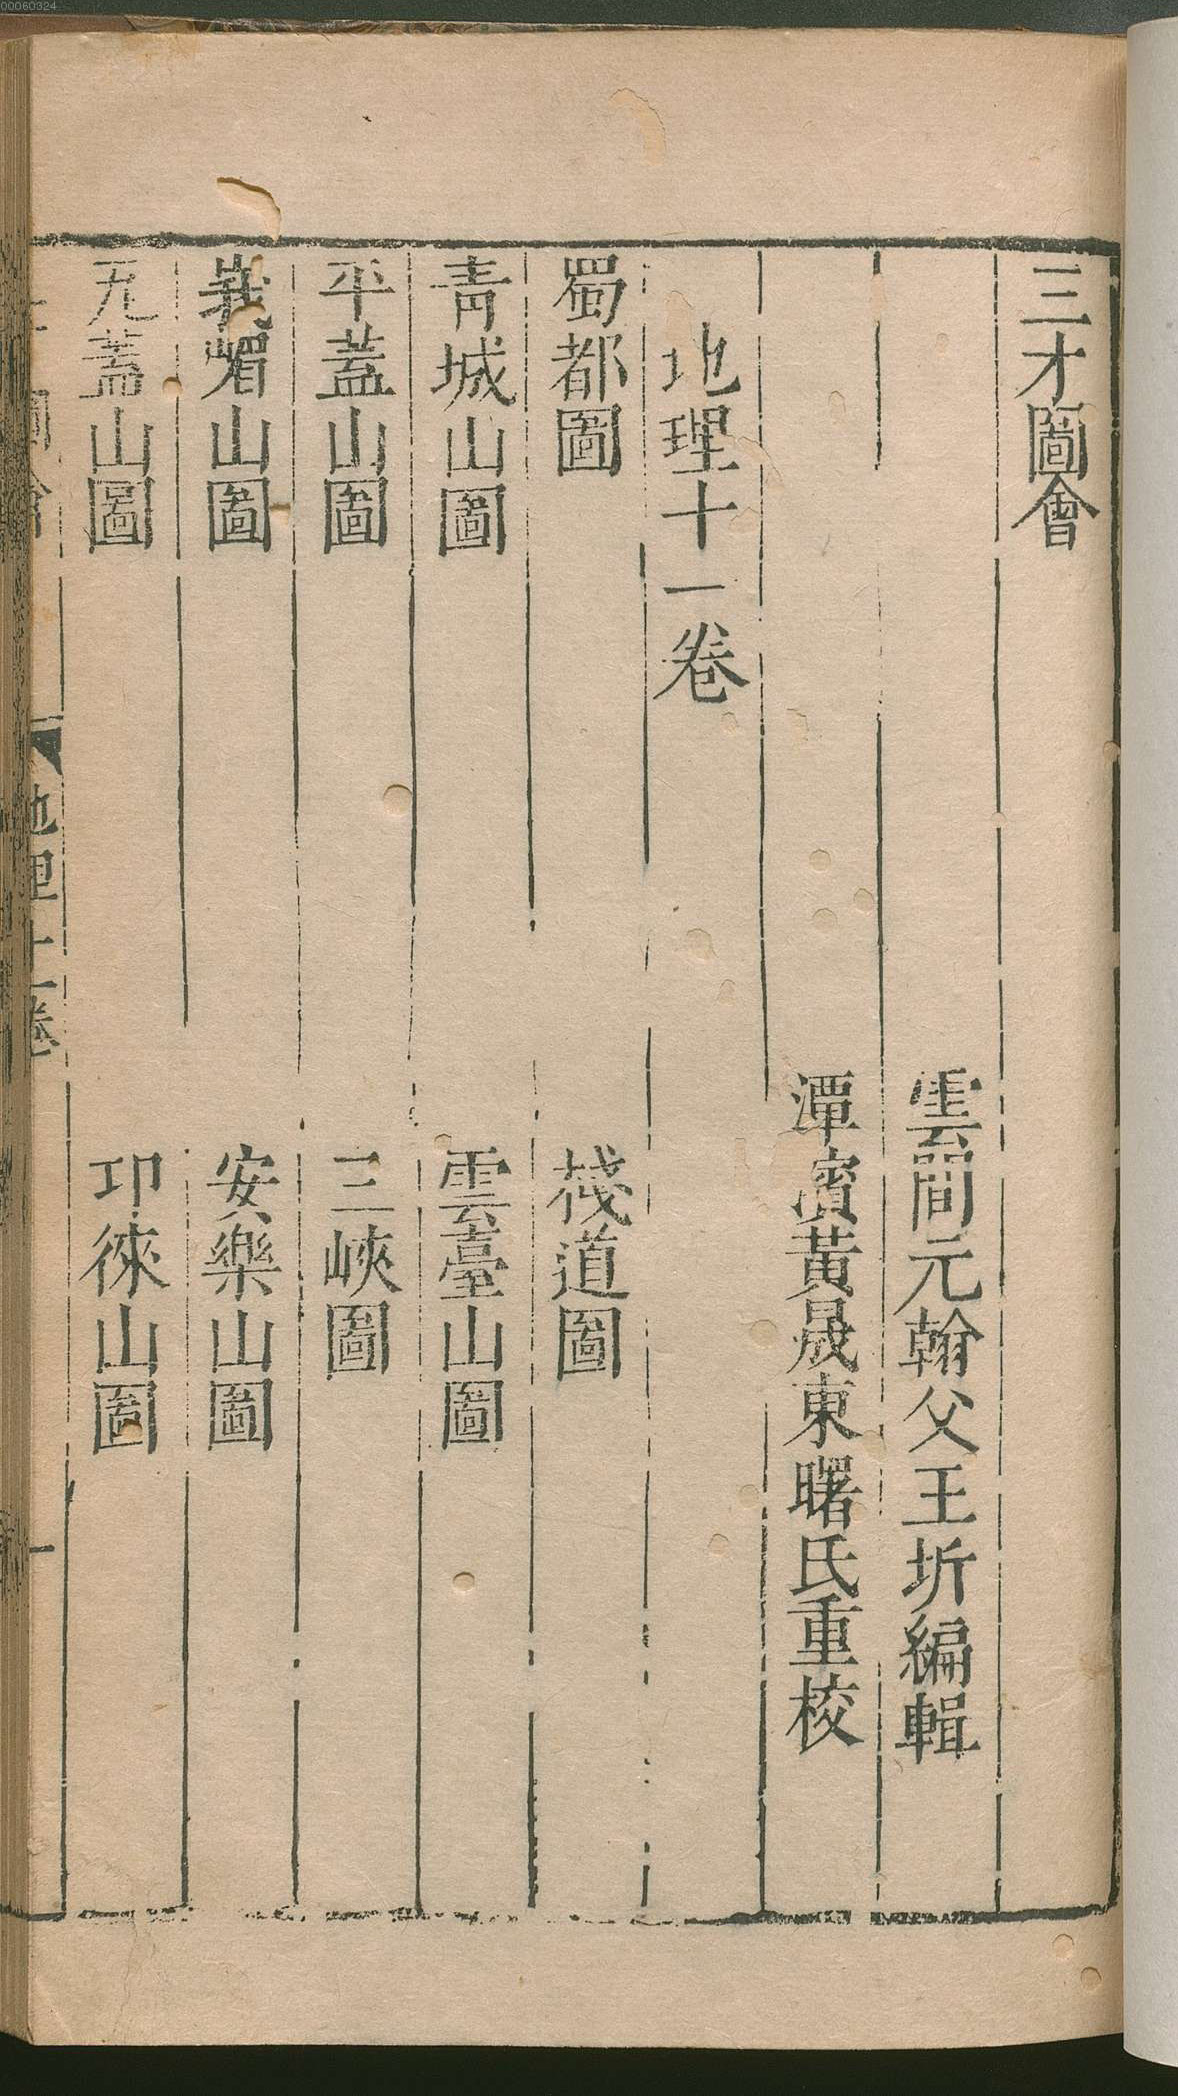 00060324
三才圖會
雲間元翰父王圻編輯
潭濱黃晟東曙氏重校
地理十一卷
蜀都圖
棧道圖
青城山圖
雲臺山圖
平蓋山圖
三峽圖
峩嵋山圖
安樂山圖
瓦蓋山圖
卭徠山圖
圖會
地理十一卷
一